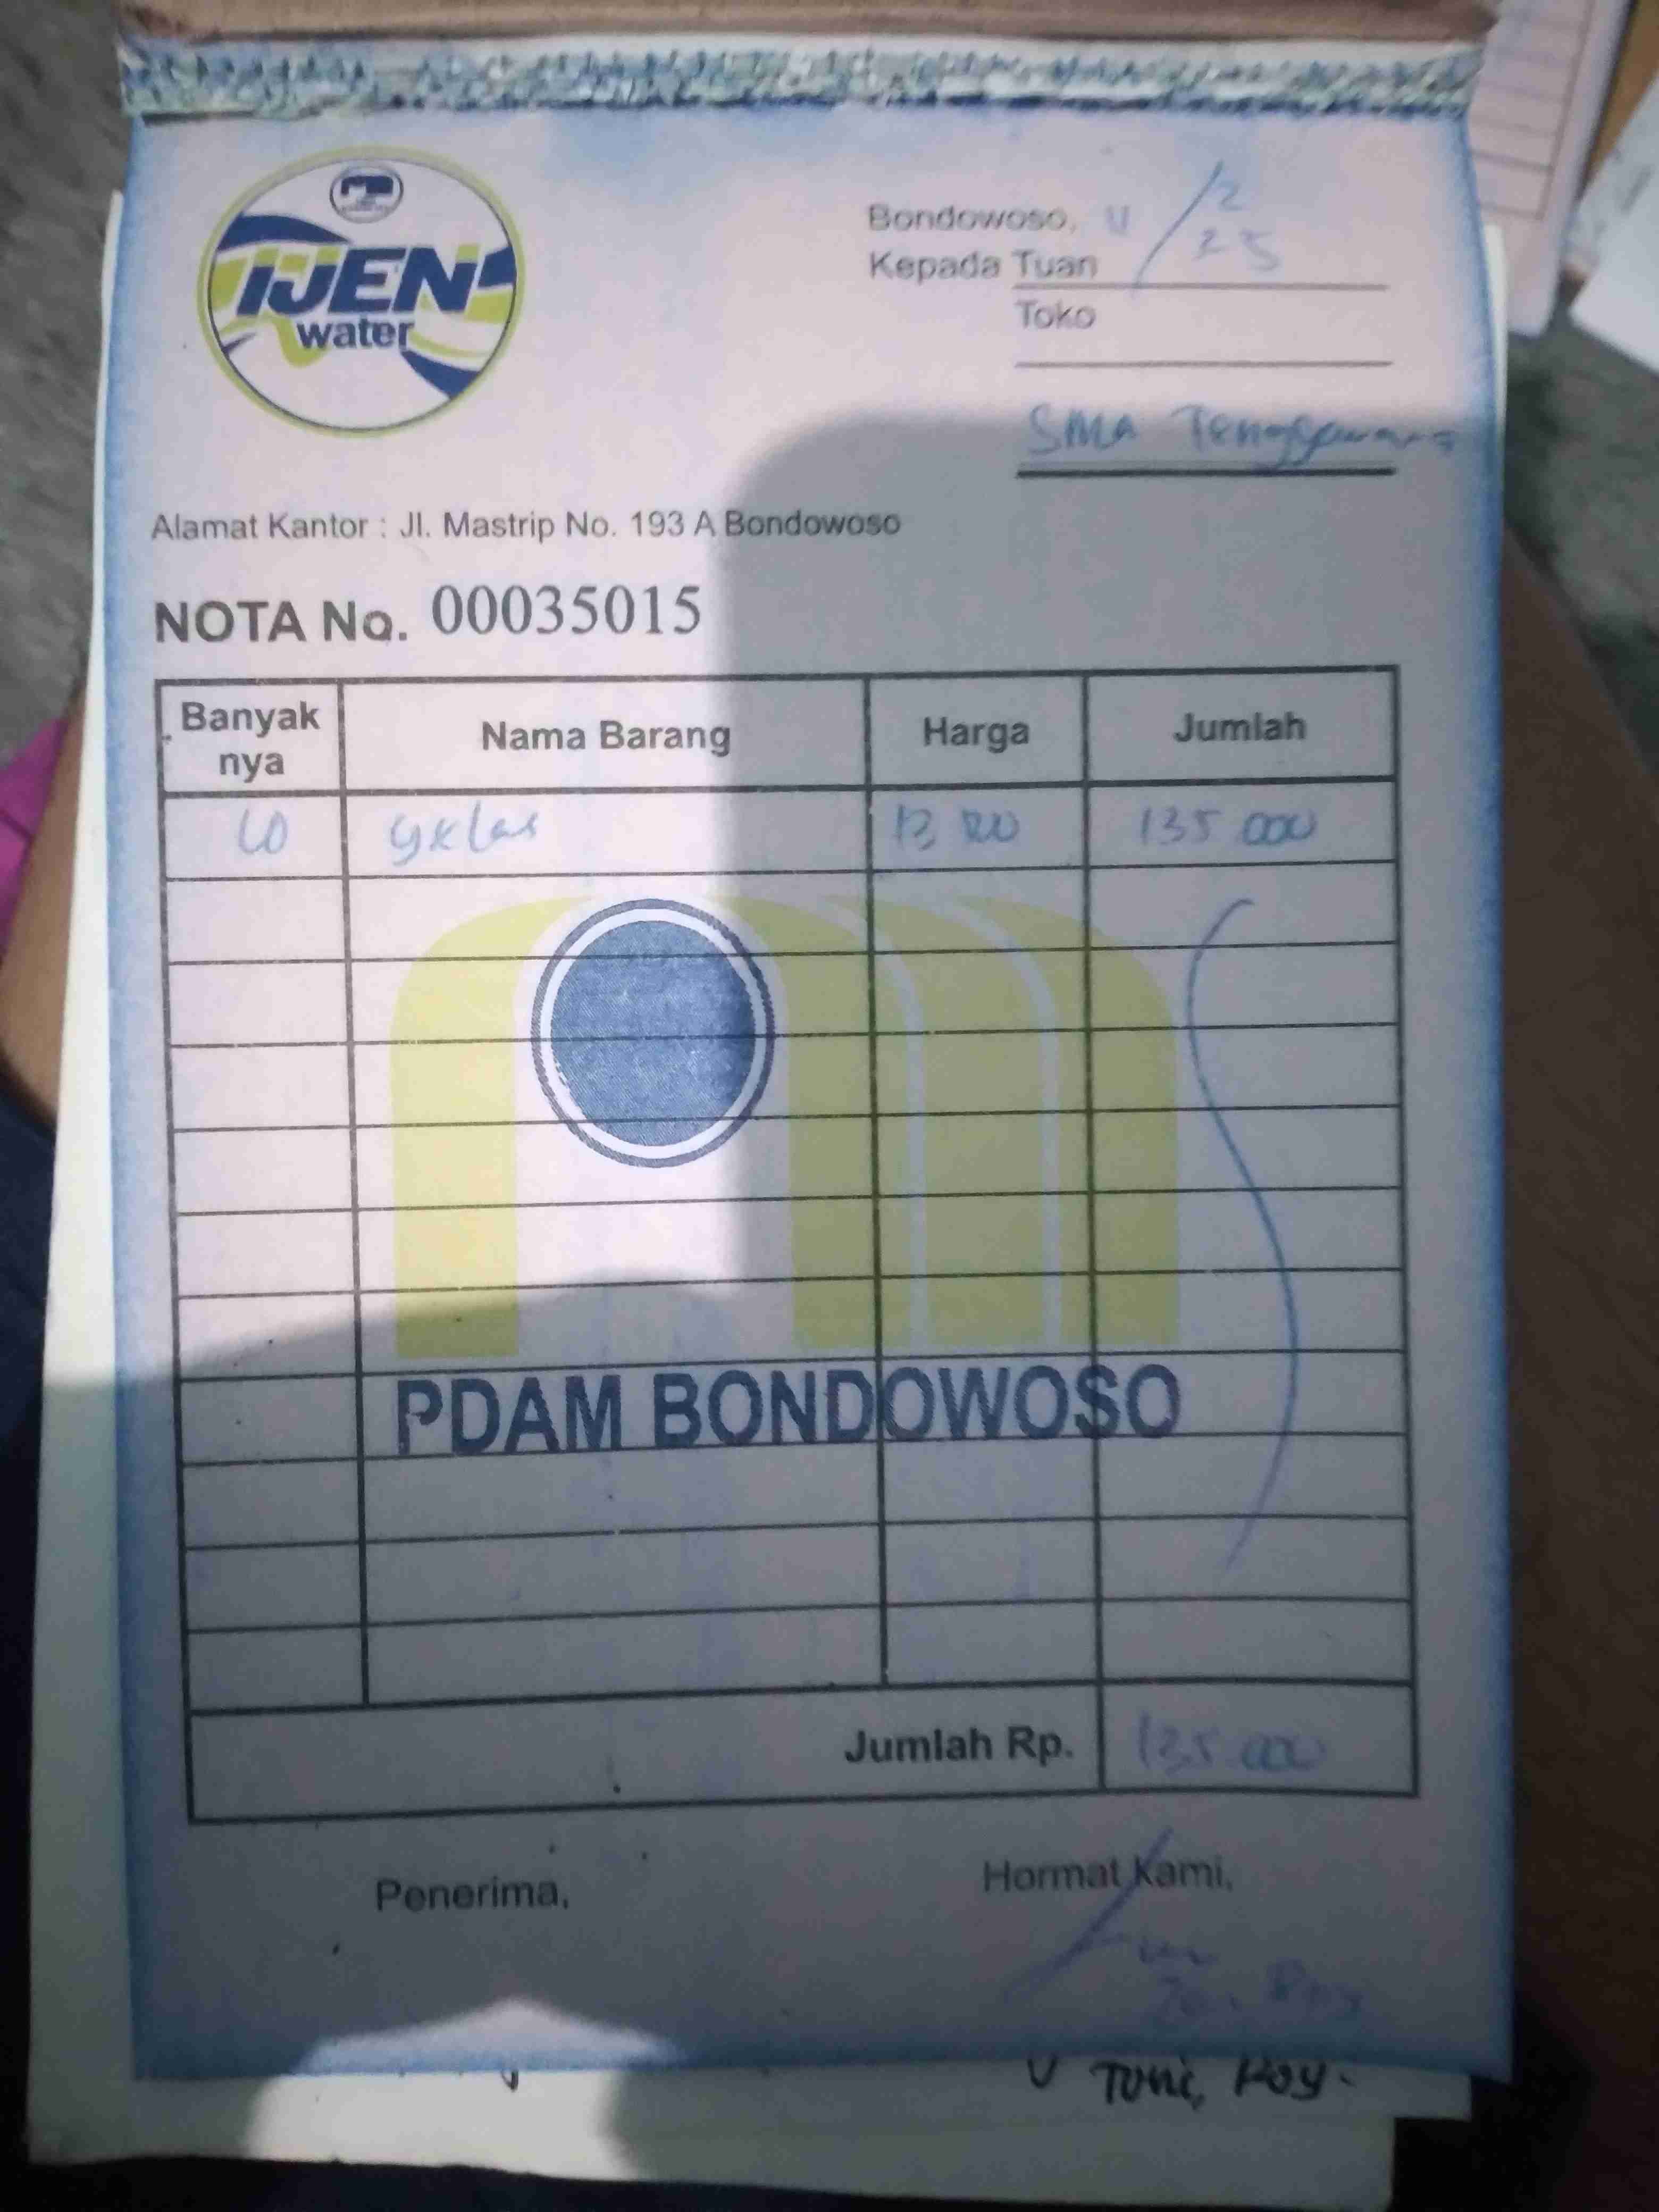 IJEN
water
Bondowoso, 11/2 25
Kepada Tuan
Toko
SMA Tenggarang
Alamat Kantor : Jl. Mastrip No. 193 A Bondowoso
NOTA No. 00035015
Banyak nya Nama Barang Harga Jumlah
10 135.000
PDAM BONDOWOSO
Jumlah Rp. 135.000
Penerima, Hormat Kami,
Roy
Toni, Roy.